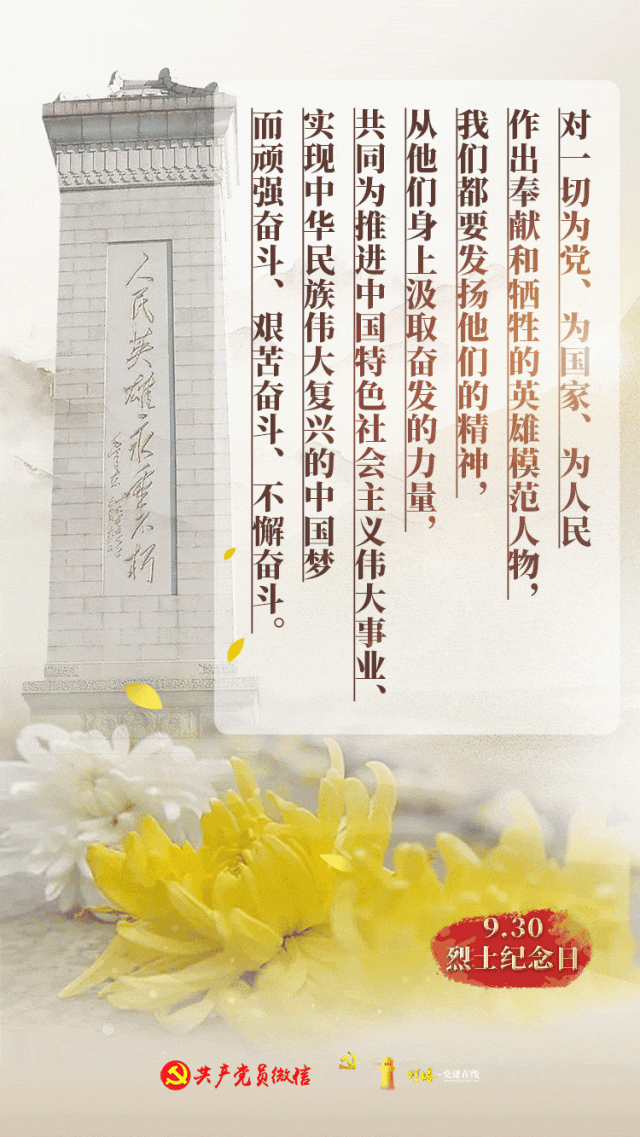 对一切为党、为国家、为人民
作出奉献和牺牲的英雄模范人物，
我们都要发扬他们的精神，
从他们身上汲取奋发的力量，
共同为推进中国特色社会主义伟大事业、
实现中华民族伟大复兴的中国梦
而顽强奋斗、艰苦奋斗、不懈奋斗。
人民英雄永垂不朽
毛泽东
9.30
烈士纪念日
共产党员微信
灯塔-党建在线